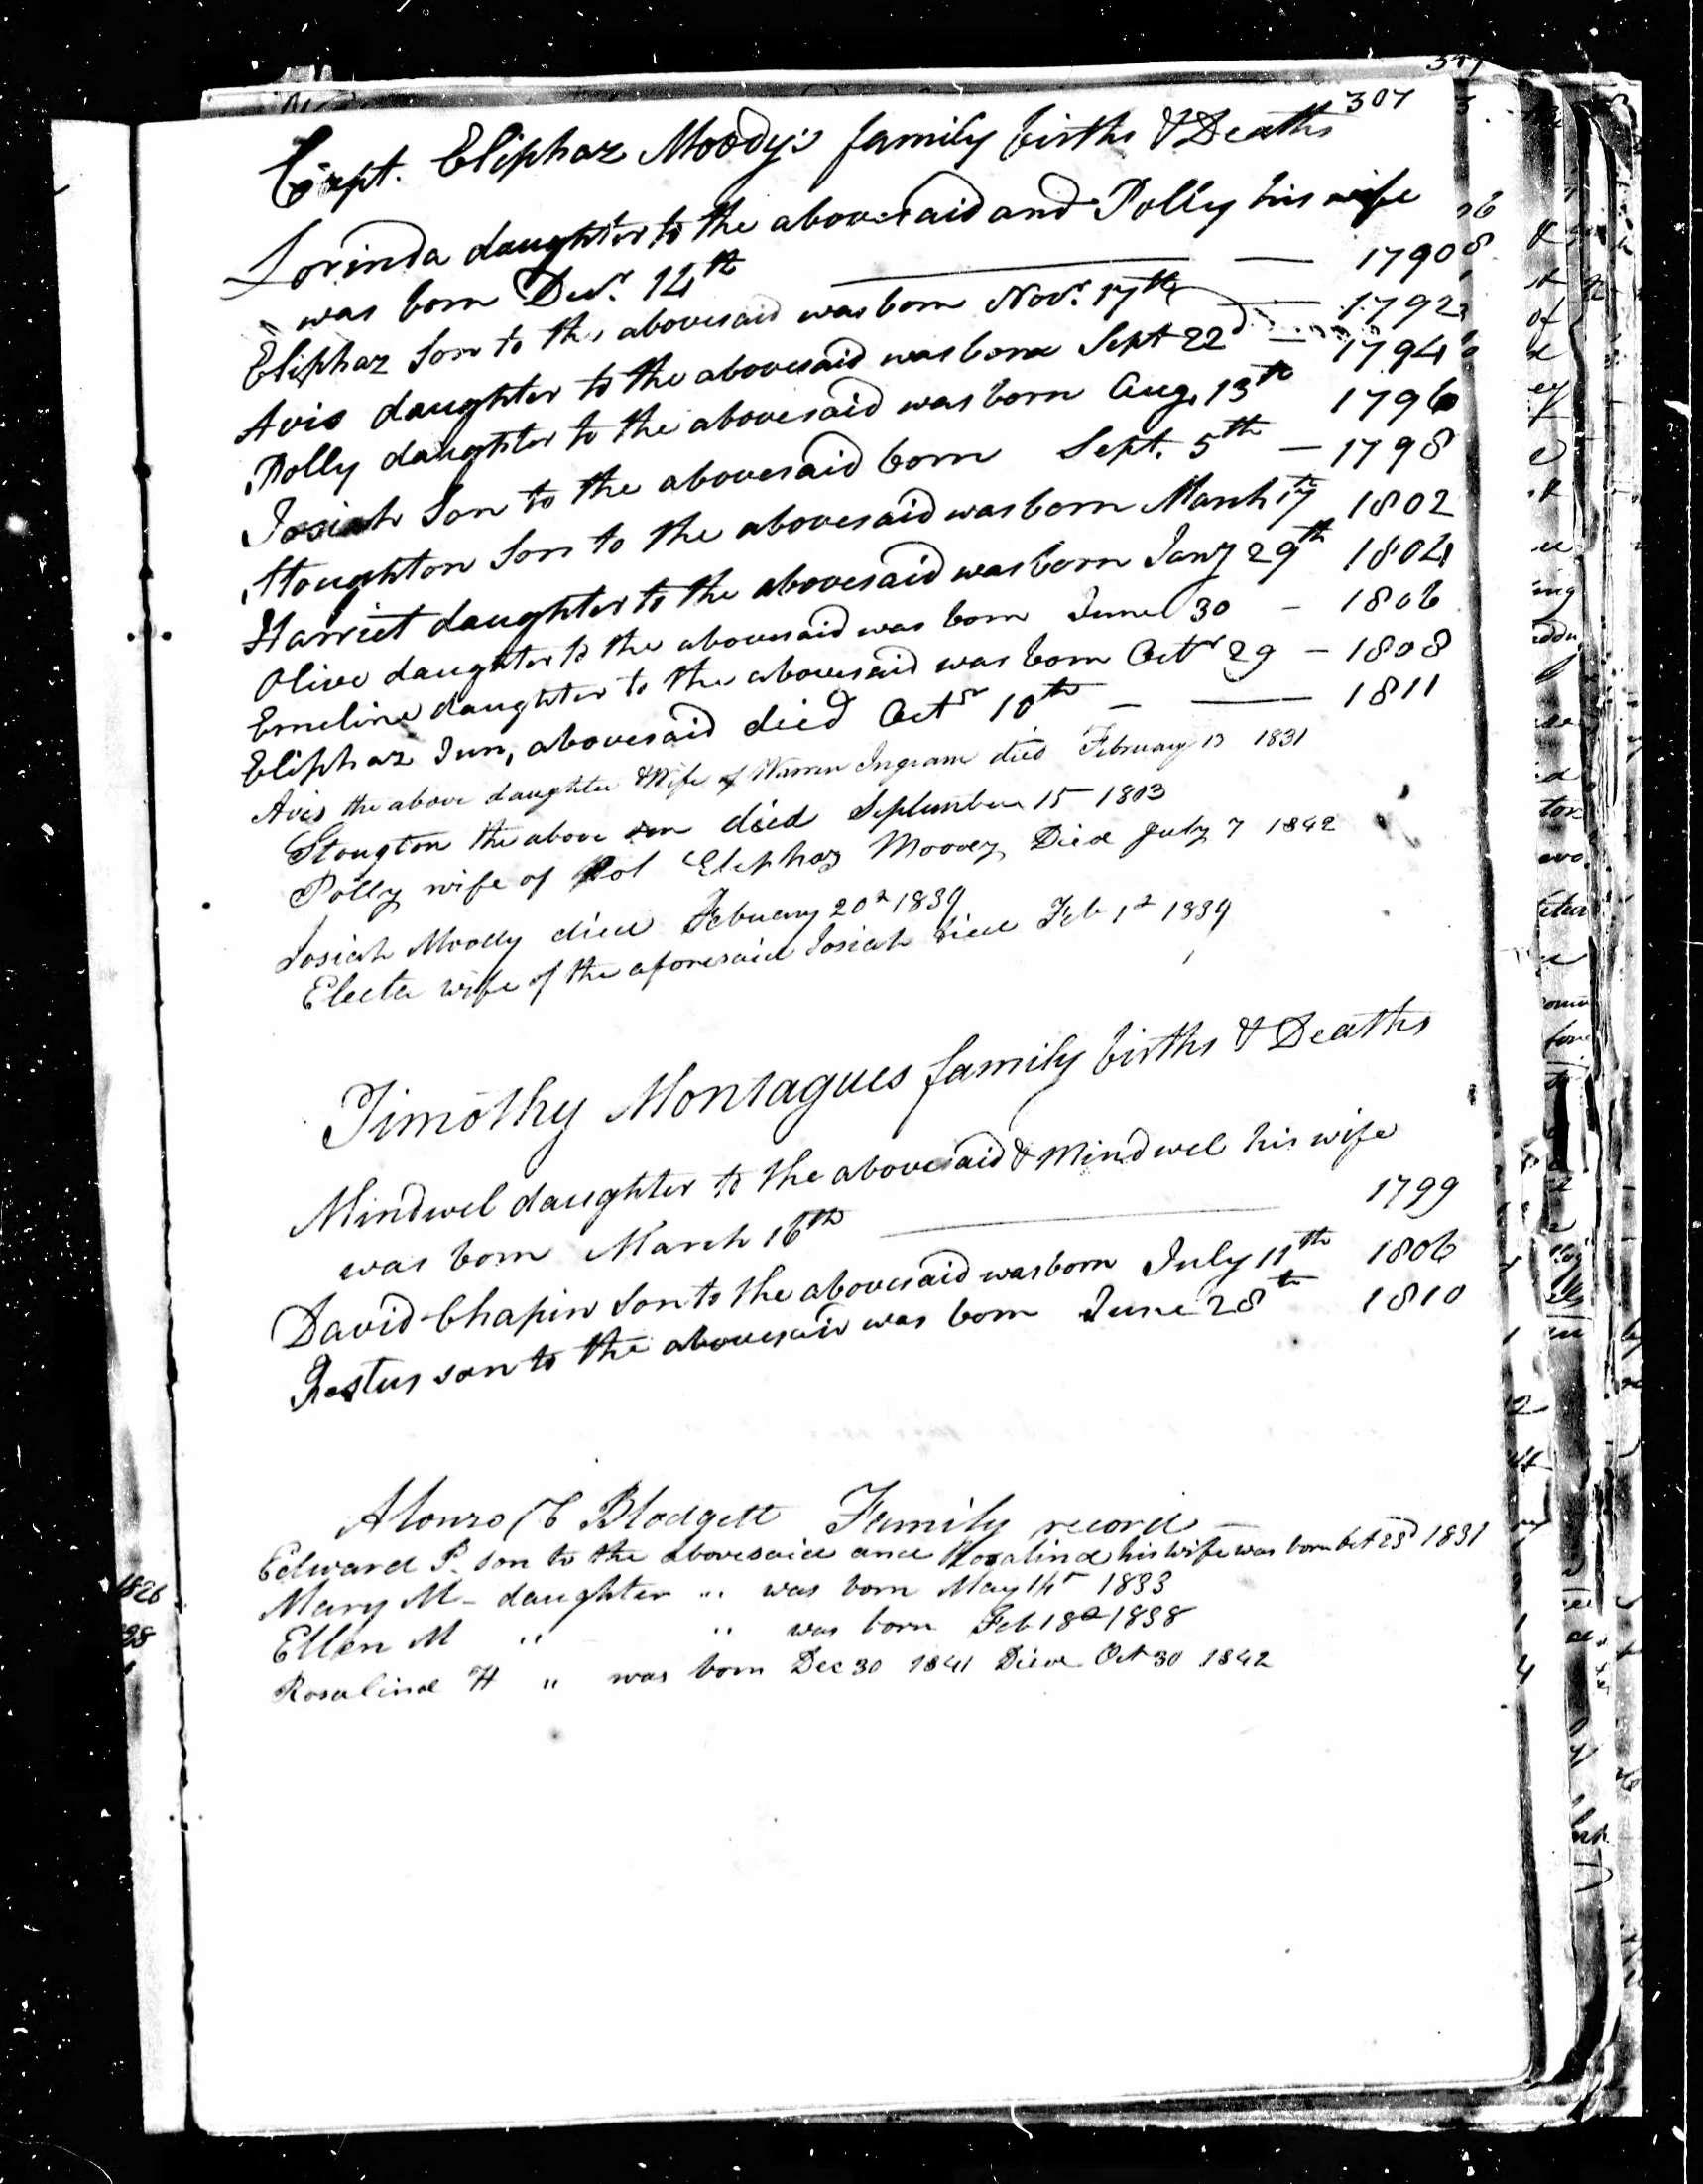 307
Capt. Eliphaz Moody's family births & Deaths
Lorinda daughter to the abovesaid and Polly his wife
was born Decr. 14th — 1790
Eliphaz Son to the abovesaid was born Novr. 17th — 1792
Avis daughter to the abovesaid was born Sept 22d — 1794
Polly daughter to the abovesaid was born Aug. 13th 1796
Josiah Son to the abovesaid born Sept. 5th — 1798
Stoughton Son to the abovesaid was born March 17th 1802
Harriet daughter to the abovesaid was born Jany 29th 1804
Olive daughter to the abovesaid was born June 30 — 1806
Emeline daughter to the abovesaid was born Octr 29 — 1808
Eliphaz Jun, abovesaid died Octr 10th — — 1811
Avis the above daughter & Wife of Warren Ingram died February 13 1831
Stougton the above son died September 15 1803
Polly wife of Col Eliphaz Moody Died July 7 1842
Josiah Moody died Febuary 20d 1839
Electa wife of the aforesaid Josiah died Feb 1d 1839
Timothy Montagues family births & Deaths
Mindwel daughter to the abovesaid & Mindwel his wife
was born March 16th — 1799
David Chapin Son to the abovesaid was born July 11th 1806
Rastus son to the abovesaid was born June 28th 1810
Alonzo C Blodgett Family record —
Edward P. son to the abovesaid and Rosalind his wife was born Oct 23d 1831
Mary M - daughter " was born May 14 1833
Ellen M " " was born Feb 18d 1838
Rosalind H " was born Dec 30 1841 Died Oct 30 1842